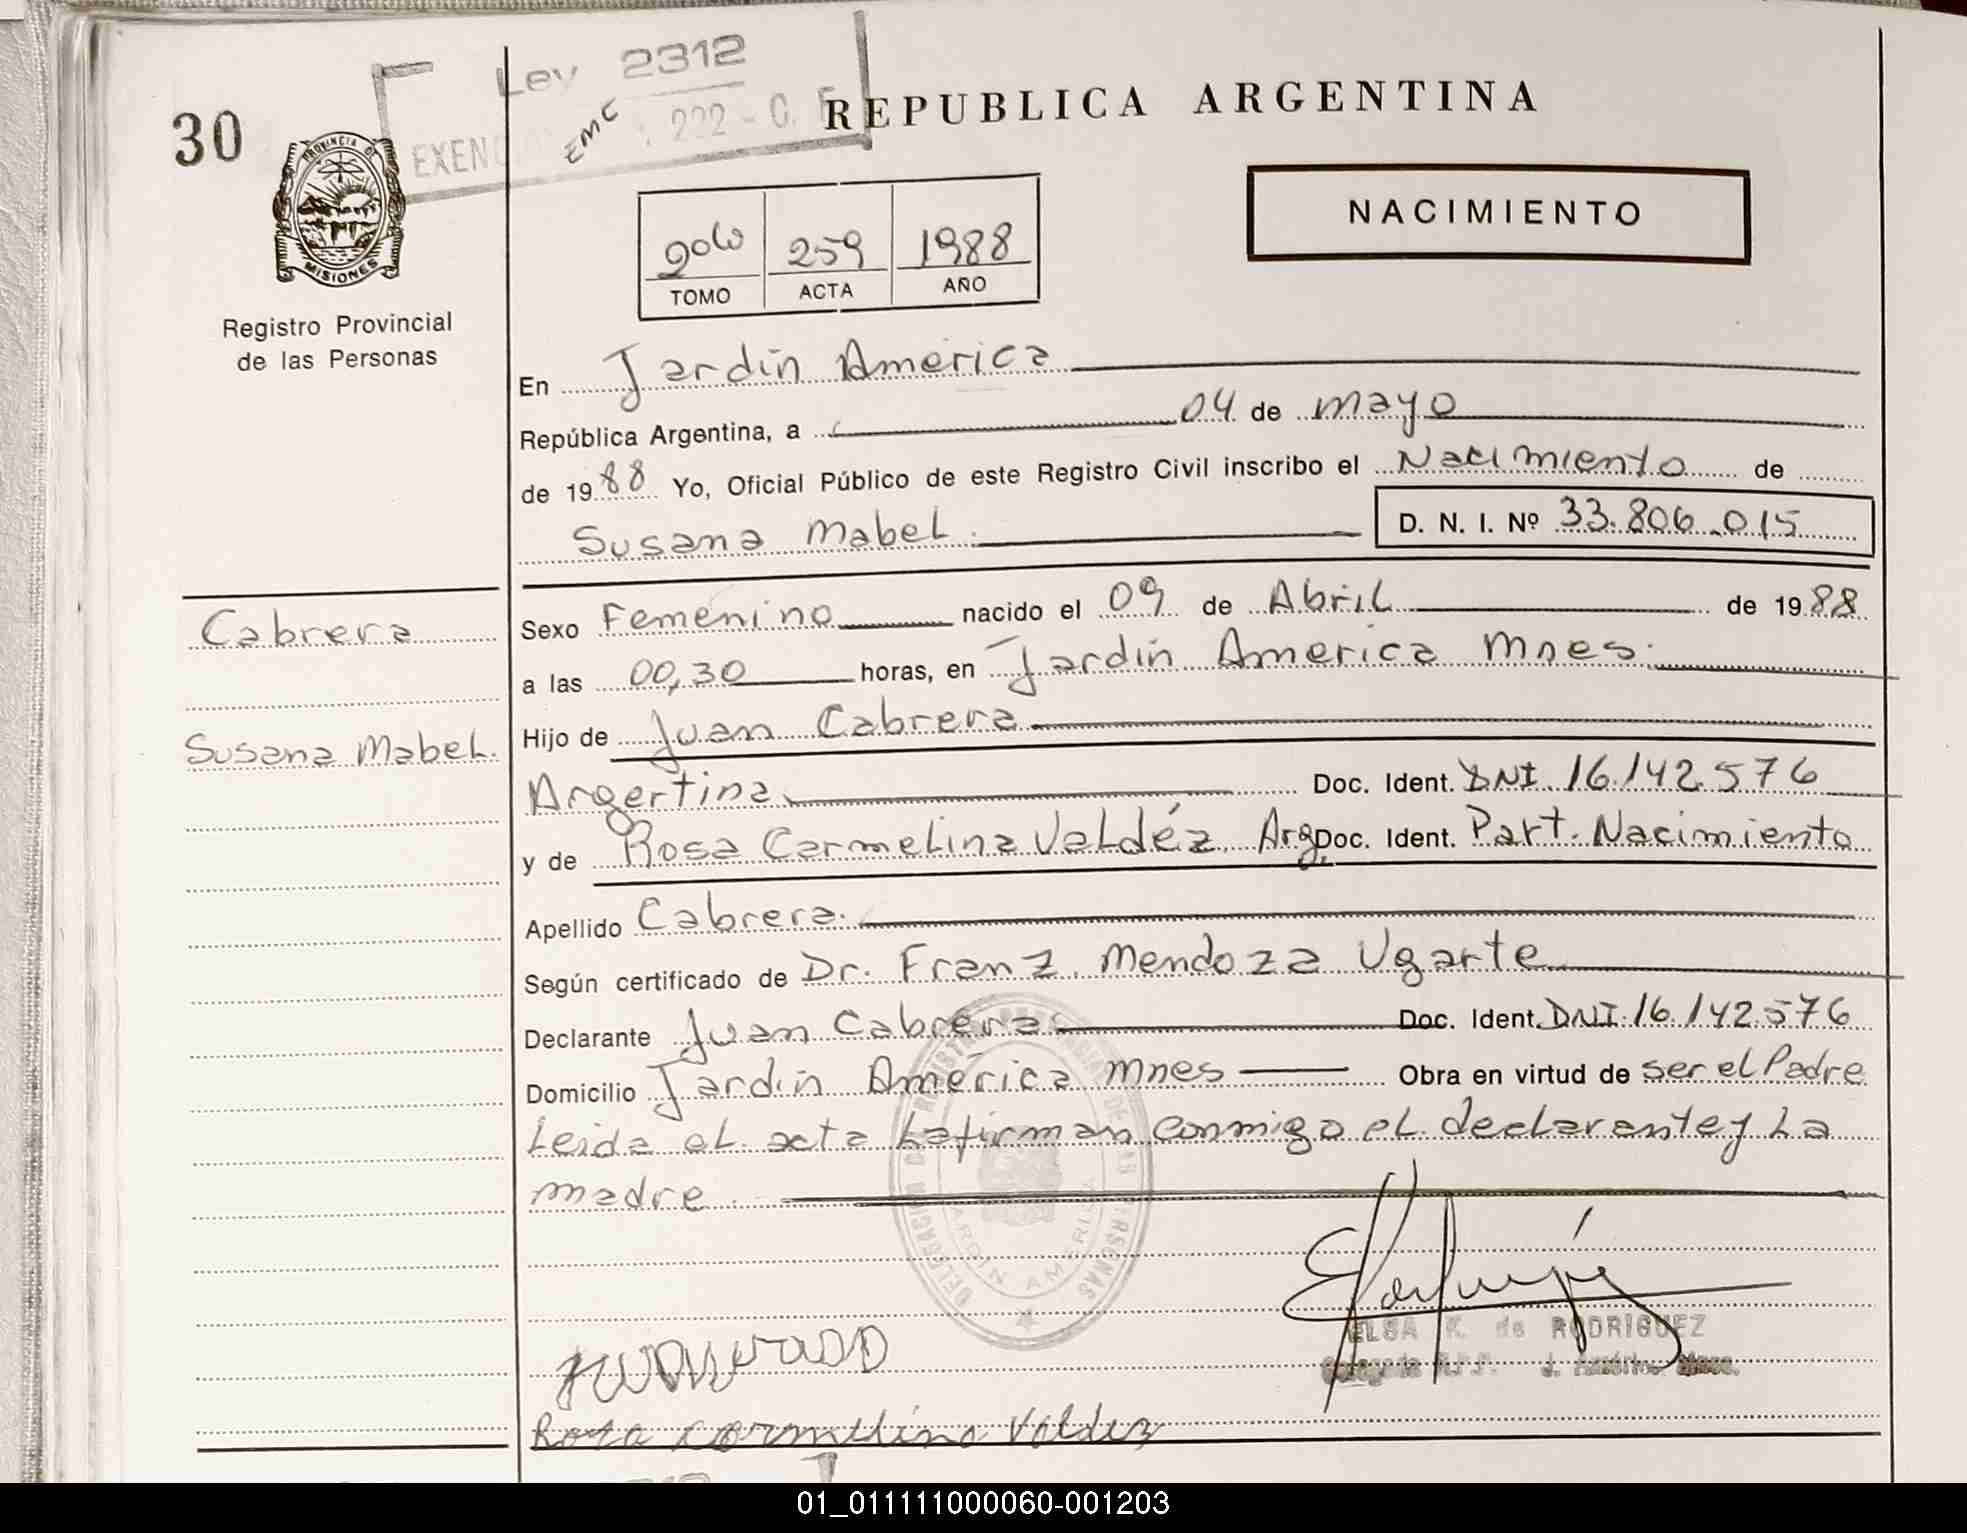 Ley 2312
30
EXEN EMC : 222 - C. F
REPUBLICA ARGENTINA
PROVINCIA DE
MISIONES
NACIMIENTO
259 1988
TOMO ACTA AÑO
Registro Provincial
de las Personas
En Jardín América
República Argentina, a 04 de mayo
de 1988 Yo, Oficial Público de este Registro Civil inscribo el Nacimiento de
Susana Mabel. D. N. I. Nº 33.806.015
Cabrera
Sexo Femenino nacido el 09 de Abril de 1988
a las 00,30 horas, en Jardín America Mnes.
Susana Mabel.
Hijo de Juan Cabrera
Argentina Doc. Ident. DNI. 16.142.576
y de Rosa Carmelina Valdéz Arg. Doc. Ident. Part. Nacimiento
Apellido Cabrera.
Según certificado de Dr. Franz Mendoza Ugarte
Declarante Juan Cabrera Doc. Ident. DNI. 16.142.576
Domicilio Jardín América Mnes Obra en virtud de ser el Padre
Leida el acta la firman conmigo el declarante y La
madre
DELEGACION DEL REGISTRO PROVINCIAL DE LAS PERSONAS
JARDIN AMERICA
ELSA K. de RODRIGUEZ
Delegada R.P.P. J. América Mnes.
Rosa Carmelina Valdez
01_011111000060-001203